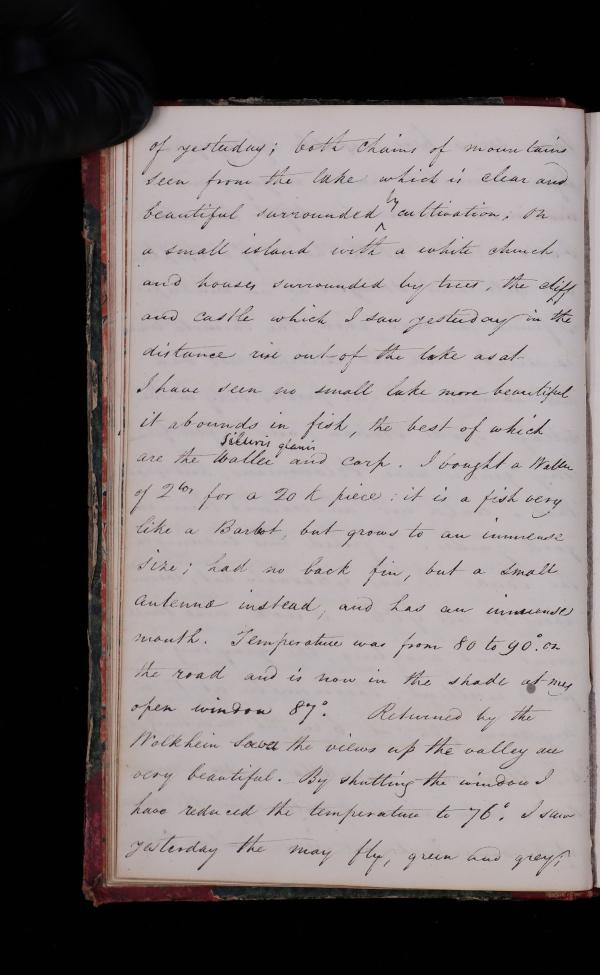 of yesterday; both chains of mountains
seen from the lake which is clear and
beautiful surrounded by cultivation; on
a small island with a white church
and houses surrounded by trees, the cliff
and castle which I saw yesterday in the
distance rise out of the lake as at
I have seen no small lake more beautiful
it abounds in fish, the best of which
Siluris glanis
are the Waller and carp. I bought a Waller
of 2 lbs for a 20 K piece: it is a fish very
like a Barbot, but grows to an immense
size; had no back fin, but a small
antenna instead, and has an immense
mouth. Temperature was from 80 to 90°. on
the road and is now in the shade at my
open window 87°. Returned by the
Wolkhein Sava the views up the valley are
very beautiful. By shutting the window I
have reduced the temperature to 76°. I saw
yesterday the may fly, green and grey,